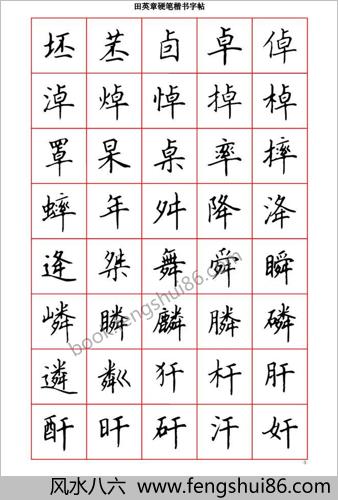 田英章硬笔楷书字帖
坯 苤 卣 卓 倬
淖 焯 悼 掉 棹
罩 杲 桌 率 摔
蟀 年 舛 降 洚
逢 桀 舞 舜 瞬
嶙 瞵 麟 膦 磷
遴 粼 犴 杆 肝
酐 旰 矸 汗 奸
book.fengshui86.com
风水八六 www.fengshui86.com